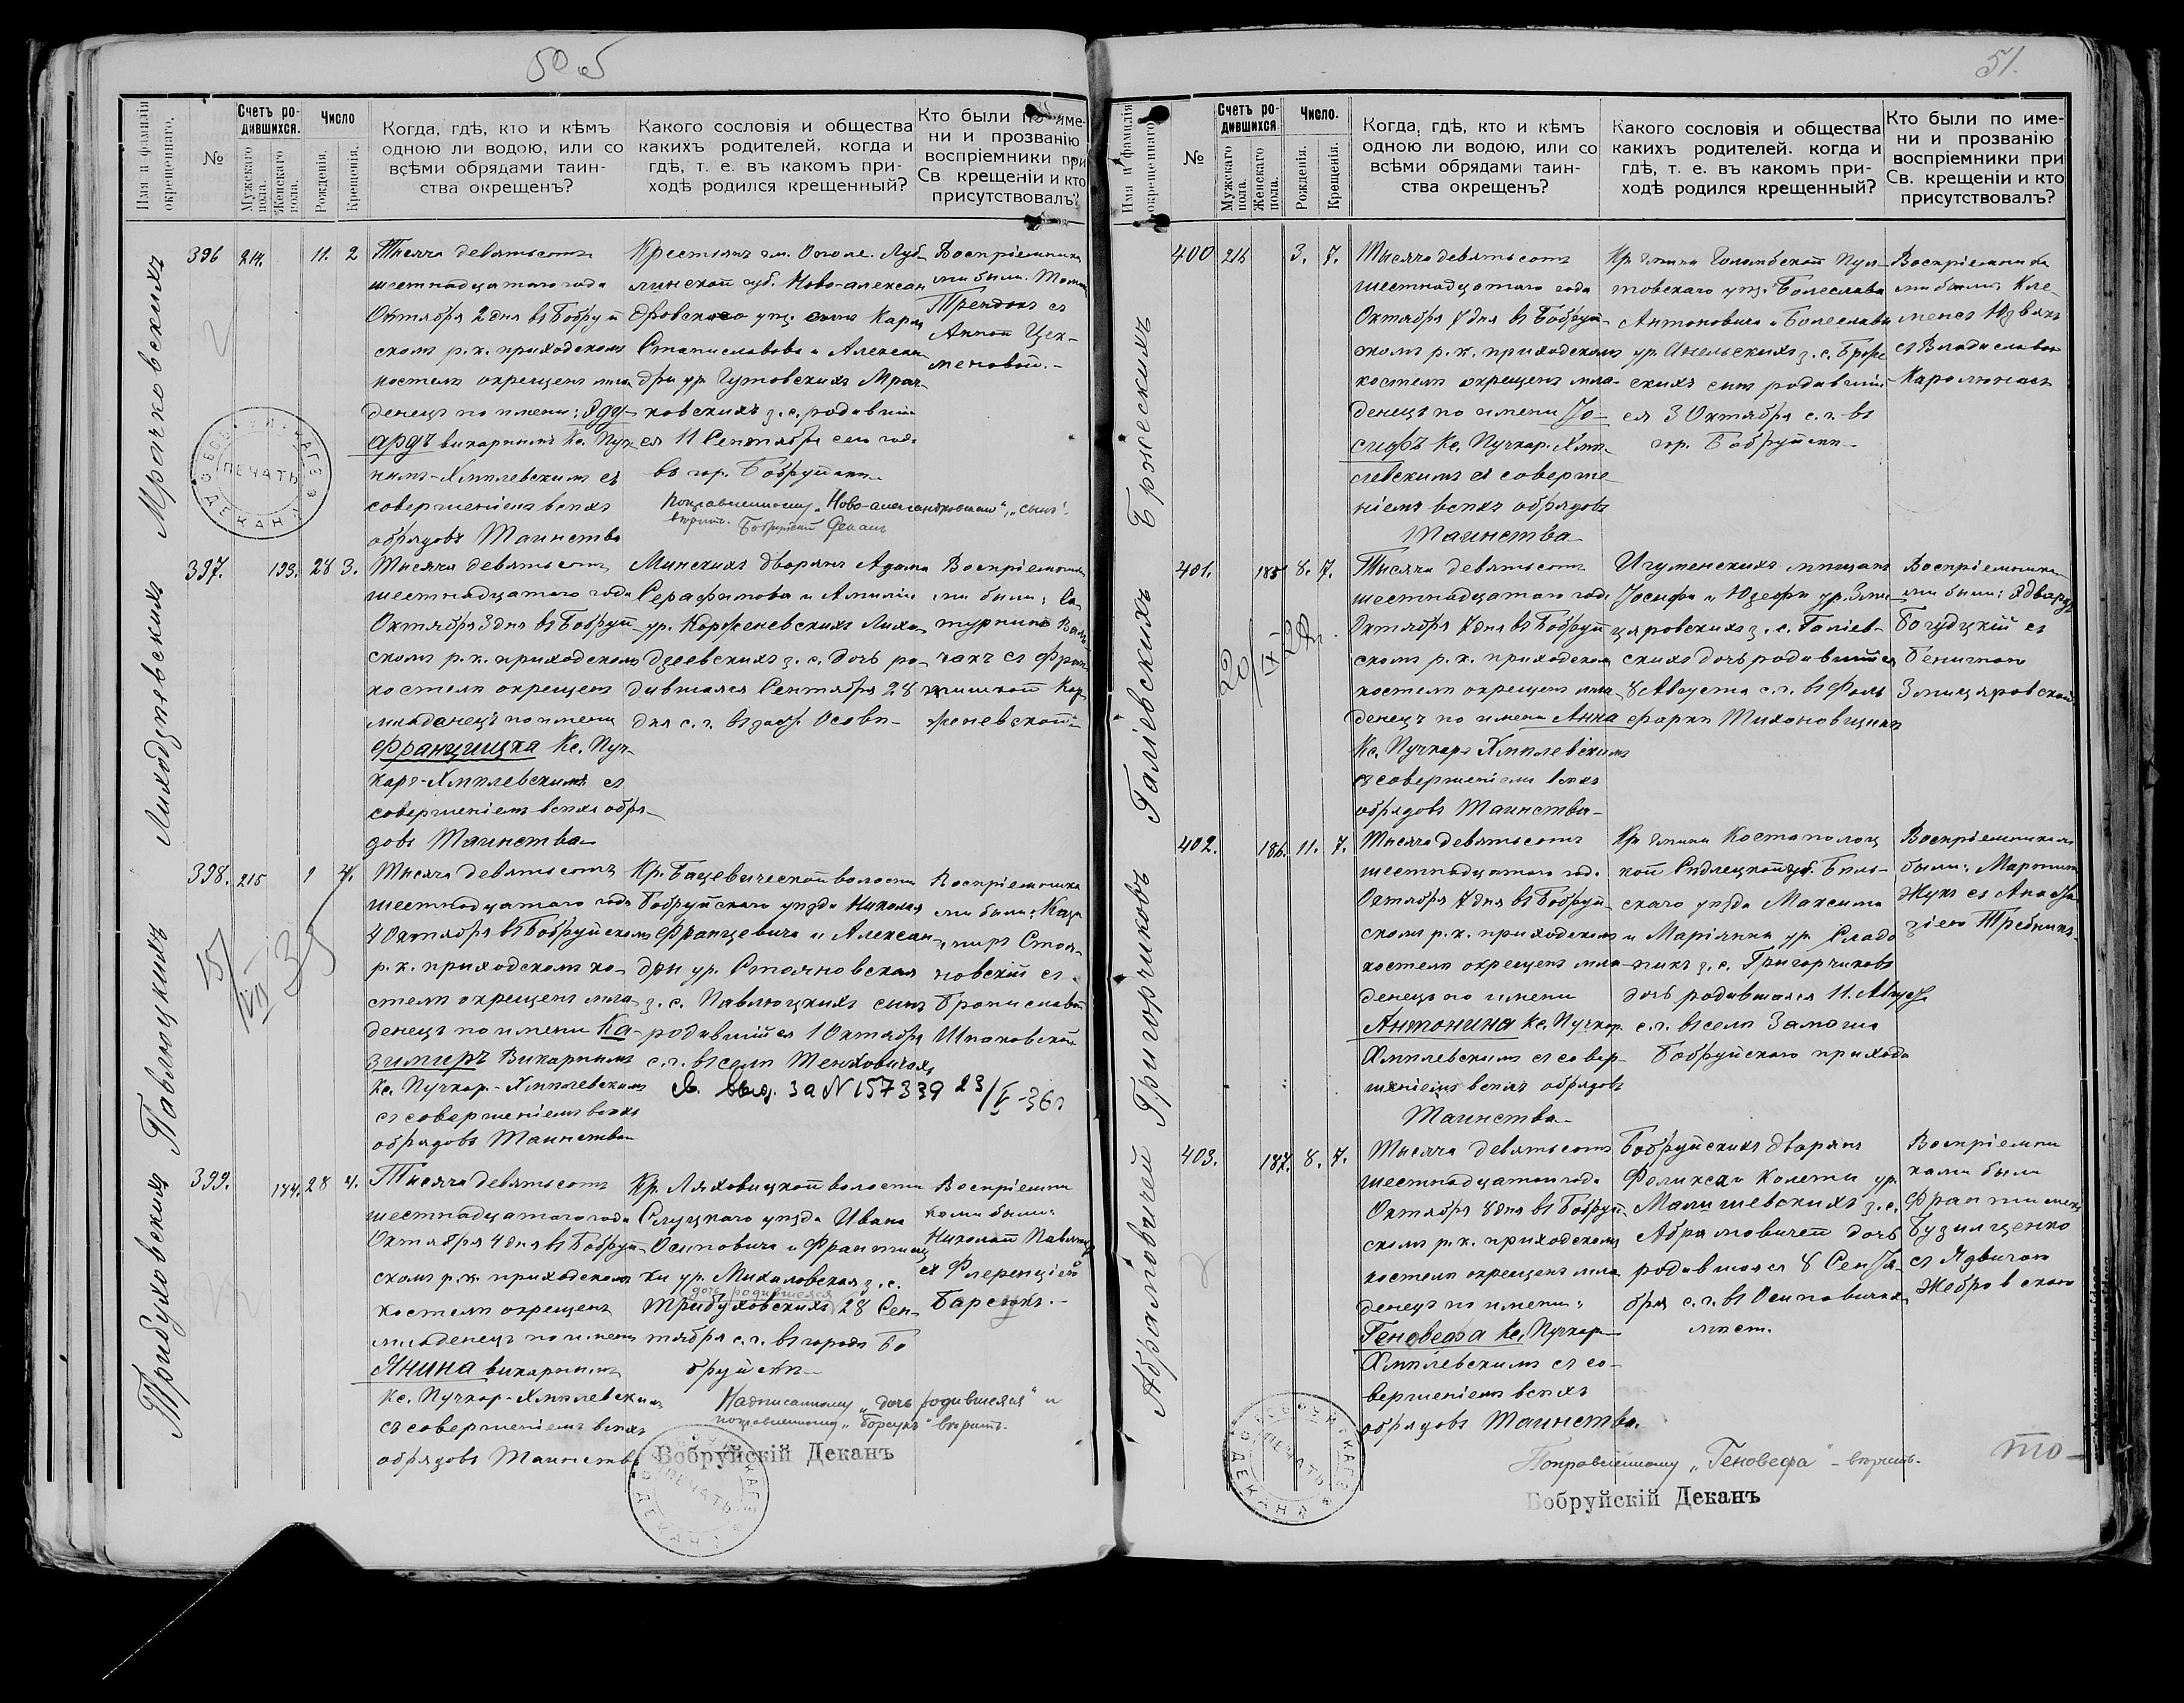 50 об
Имя и фамилія
окрещеннаго.
№
Счетъ ро-
дившихся.
Мужскаго
пола.
Женскаго
пола.
Число
Рожденія.
Крещенія.
Когда, гдѣ, кто и кѣмъ
одною ли водою, или со
всѣми обрядами таин-
ства окрещенъ?
Какого сословія и общества
какихъ родителей, когда и
гдѣ, т. е. въ какомъ при-
ходѣ родился крещенный?
Кто были по име-
ни и прозванію
воспріемники при
Св. крещеніи и кто
присутствовалъ?
Мрачковскихъ
396 214. 11. 2
Тысяча девятьсотъ
шестнадцатаго года
Октября 2 дня въ Бобруй
скомъ р. к. приходскомъ
костелѣ окрещенъ мла
денецъ по имени: Эду-
ардъ викарнымъ Кс. Пуч
каръ-Хмѣлевскимъ съ
совершеніемъ всѣхъ
обрядовъ Таинства
Крестьянъ гм. Ополе. Люб-
линской губ. Ново-алексан
дровскаго уѣз. сынъ Карла
Станиславова и Алексан
дры ур. Гутовскихъ Мрач-
ковскихъ з. с. родивший
ся 11 Сентября сего года
въ гор. Бобруйскѣ
Поправленному „Ново-александровскаго“, „сынъ“
вѣрить. Бобруйскій Деканъ
Воспріемника
ми были
съ
Анной Цек-
меновой.-
ПЕЧАТЬ
Лиходзѣевскихъ
397. 193. 28 3.
Тысяча девятьсотъ
шестнадцатаго года
Октября 3 дня въ Бобруй-
скомъ р. к. приходскомъ
костелѣ окрещенъ
младенецъ по имени
Францишка Кс. Пуч-
каръ-Хмѣлевскимъ съ
совершеніемъ всѣхъ обря-
довъ Таинства
Минскихъ дворянъ Адама
Серафимова и Амиліи
ур. Корженевскихъ Лихо-
дзеевскихъ з. с. дочь ро-
дившаяся Сентября 28
дня с. г. въ
Воспріемника
ми были: Са-
турнинъ
съ Фран
цишкой Кор
женевской
Павлюцкихъ
398. 215 1 4.
Тысяча девятьсотъ
шестнадцатаго года
4 Октября въ Бобруйскомъ
р. к. приходскомъ ко-
стелѣ окрещенъ мла
денецъ по имени Ка-
зимиръ Викарнымъ
Кс. Пучкар.-Хмѣлевскимъ
съ совершеніемъ всѣхъ
обрядовъ Таинства
Кр. Бацевичской волости
Бобруйскаго уѣзда Николая
Францевича и Алексан-
дры ур. Стояновская
з. с. Павлюцкихъ сынъ
родившійся 1 Октября
с. г. въ селѣ
за N 157339 23/V-36г
Воспріемника
ми были: Кази
миръ Стоя-
новскій съ
Брониславой
Шпаковской
Трибуховскихъ
399. 194. 28 4.
Тысяча девятьсотъ
шестнадцатаго года
Октября 4 дня въ Бобруй-
скомъ р. к. приходскомъ
костелѣ окрещенъ
младенецъ по имени
Янина викарнымъ
Кс. Пучкар-Хмѣлевскимъ
съ совершеніемъ всѣхъ
обрядовъ Таинства
Кр. Ляховицкой волости
Слуцкаго уѣзда Ивана
Осиповича и Францишки
ур. Михаловская з. с.
дочь родившаяся
Трибуховскихъ 28 Сен-
тября с. г. въ городѣ Бо
бруйскѣ
Надписанному „дочь родившаяся“ и
поправленному „Борсукъ“ вѣрить.
Бобруйскій Деканъ
Воспріемни
ками были:
Николай
съ Флеренціей
Борсукъ.-
ПЕЧАТЬ
51.
Имя и фамилія
окрещеннаго.
№
Счетъ ро-
дившихся
Мужскаго
пола.
Женскаго
пола.
Число.
Рожденія.
Крещенія.
Когда, гдѣ, кто и кѣмъ
одною ли водою, или со
всѣми обрядами таин-
ства окрещенъ?
Какого сословія и общества
какихъ родителей. когда и
гдѣ, т. е. въ какомъ при-
ходѣ родился крещенный?
Кто были по име-
ни и прозванію
воспріемники при
Св. крещеніи и кто
присутствовалъ?
Бржескихъ
400 216 3. 7.
Тысяча девятьсотъ
шестнадцатаго года
Октября 7 дня въ Бобруй-
скомъ р. к. приходскомъ
костелѣ окрещенъ мла-
денецъ по имени Іо-
сифъ Кс. Пучкар. Хмѣ-
левскимъ съ соверше-
ніемъ всѣхъ обрядовъ
Таинства
Кр. гмины Голомбской Пул-
товскаго уѣз. Болеслава
Антоновича и Болеславы
ур. з. с. Брже
скихъ сынъ родивший
ся 3 Октября с. г. въ
гор. Бобруйскѣ
Воспріемника
ми были: Кле-
менсъ
съ Владиславою
Галіевскихъ
401. 185 8. 7.
Тысяча девятьсотъ
шестнадцатаго года
Октября 7 дня въ Бобруй
скомъ р. к. приходскомъ
костелѣ окрещенъ мла
денецъ по имени Анна
Кс. Пучкаръ Хмѣлевскимъ
съ совершеніемъ всѣхъ
обрядовъ Таинства
Игуменскихъ мѣщанъ
Іосифа и Юзефы ур. Зми-
цяровскихъ з. с. Галіев-
скихъ дочь родившаяся
8 Августа с. г. въ Фоль
варкѣ Тихоновщинѣ
Воспріемника
ми были: Эдвардъ
Богуцкій съ
Бенигною
Змицяровской
Григорчиковъ
402. 186. 11. 7.
Тысяча девятьсотъ
шестнадцатаго года
Октября 7 дня въ Бобруй-
скомъ р. к. приходскомъ
костелѣ окрещенъ мла
денецъ по имени
Антонина Кс. Пучкар.
Хмѣлевскимъ съ совер-
шеніемъ всѣхъ обрядовъ
Таинства
Кр. гмины Костополоц
кой Сѣдлецкой губ. Бѣль-
скаго уѣзда Максима
и Маріанны ур. Сладо
з. с. Григорчиковъ
дочь родившаяся 11 Август.
с. г. въ селѣ Замошѣ
Бобруйскаго прихода
Воспріемниками
были: Мартинъ
Жукъ съ Анаста
зіею
Абрамовичей
403. 187. 8. 7.
Тысяча девятьсотъ
шестнадцатаго года
Октября 8 дня въ Бобруй-
скомъ р. к. приходскомъ
костелѣ окрещенъ мла
денецъ по имени:
Геновефа Кс. Пучкар-
Хмѣлевскимъ съ со-
вершеніемъ всѣхъ
обрядовъ Таинства.
Бобруйскихъ дворянъ
Феликса и Колеты ур.
Малишевскихъ з. с.
Абрамовичей дочь
родившаяся 8 Сентя-
бря с. г. въ Осиповичахъ
мѣст.
Воспріемни
ками были
Францишекъ
съ Ядвигою
Жебровскою
Поправленному „Геновефа“ - вѣрить.
Бобруйскій Деканъ
ПЕЧАТЬ
то-